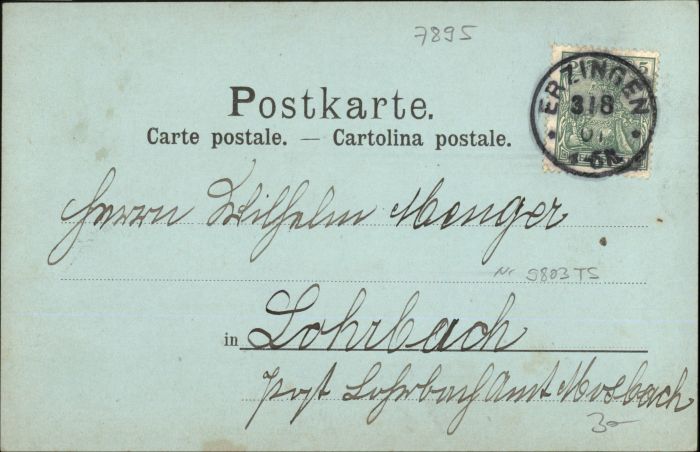 7895
5
ERZINGEN
3 1 8
01
Postkarte.
Carte postale. — Cartolina postale.
Herrn Wilhelm Menger
Nr 9803 TS
in Lohrbach
post Lohrbach Amt Mosbach
3-